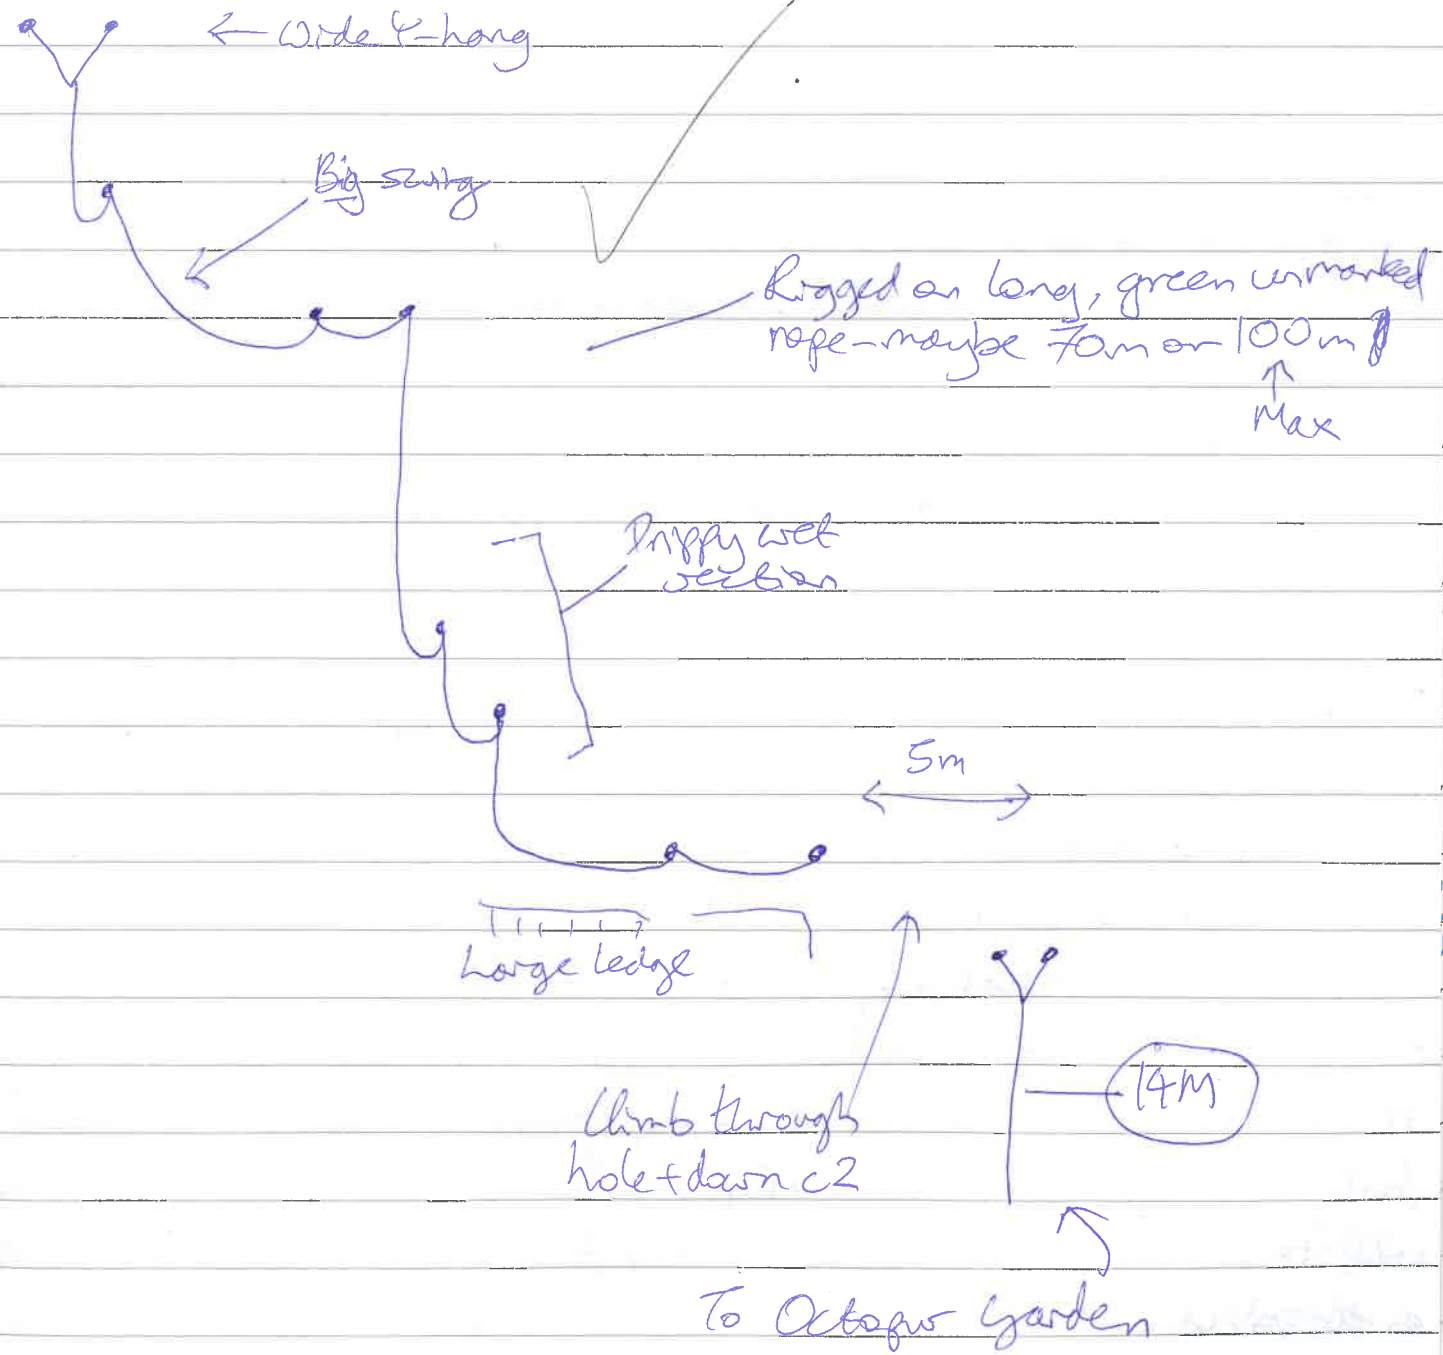 ← Wide Y-hang
Big swing
Rigged on long, green unmarked
rope - maybe 70m or 100m
↑
Max
Drippy wet
section
5m
Large ledge
Climb through
hole + down c2
14M
To Octopus Garden